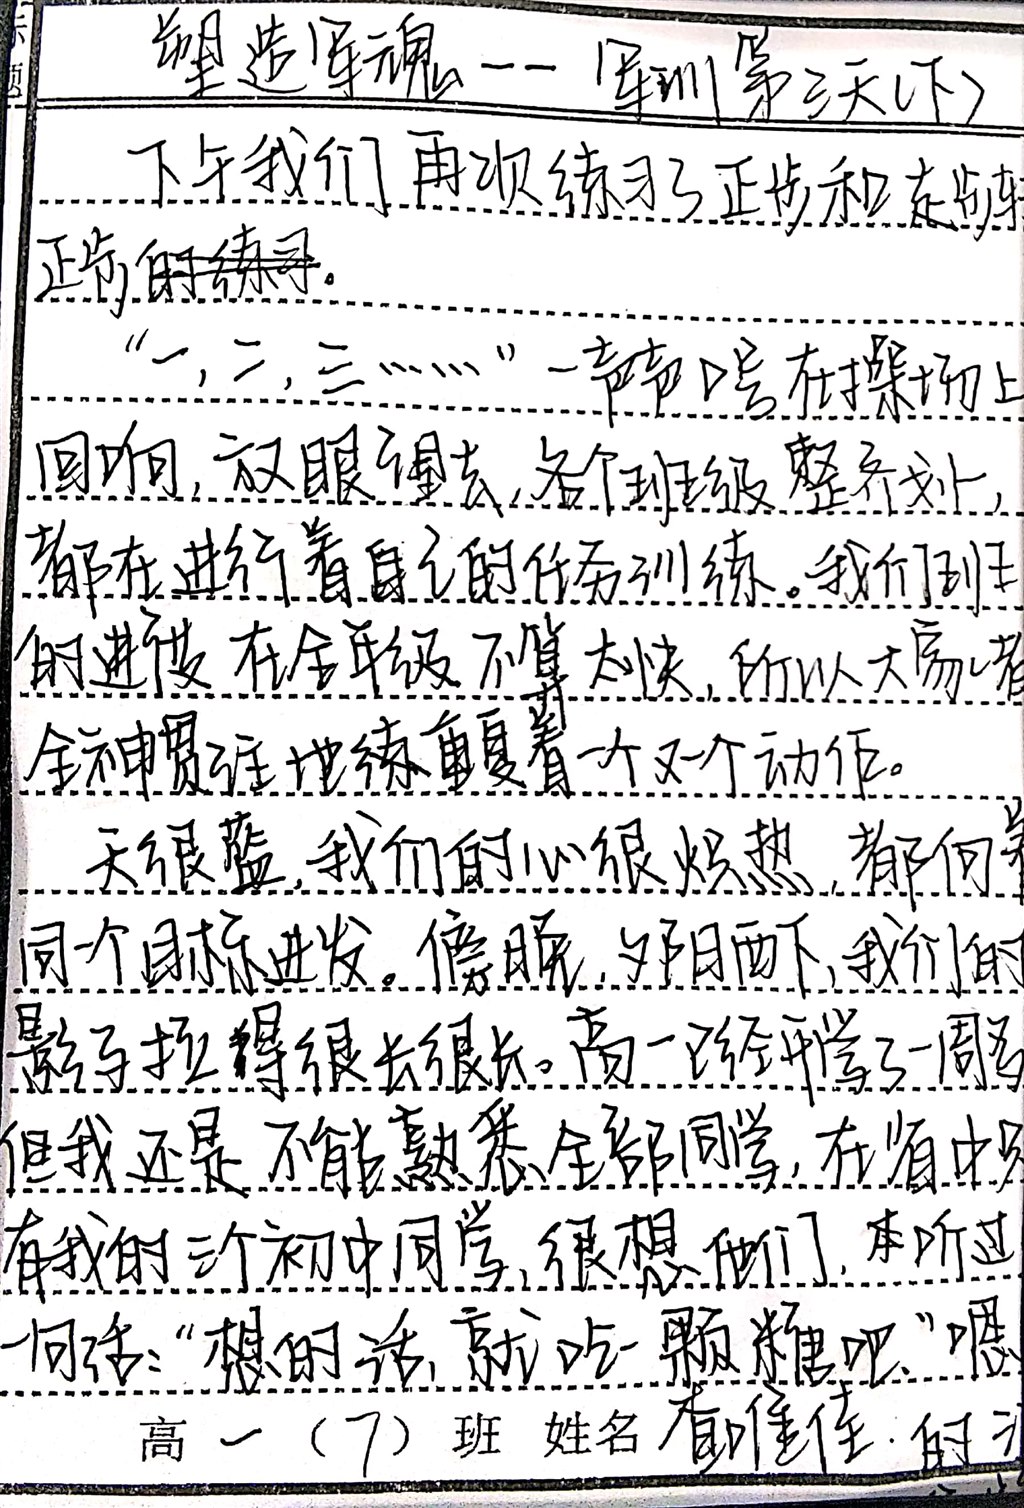 标题
塑造军魂——军训第三天(下)
下午我们再次练习了正步和走步转
正步的练习。
“一，二，三……”一声声口号在操场上
回响，放眼望去，各个班级整齐划一，
都在进行着自己的任务训练。我们班
的进度在全年级不算太快，所以大家都
全神贯注地练重复着一个又一个动作。
天很蓝，我们的心很炽热，都向着
同一个目标进发。傍晚，夕阳西下，我们的
影子拉得很长很长。高一已经开学了一周多
但我还是不能熟悉全部同学，在省中只
有我的三个初中同学，很想他们，本听过
一句话：“想的话，就吃一颗糖吧、”嗯
高一（7）班 姓名 的